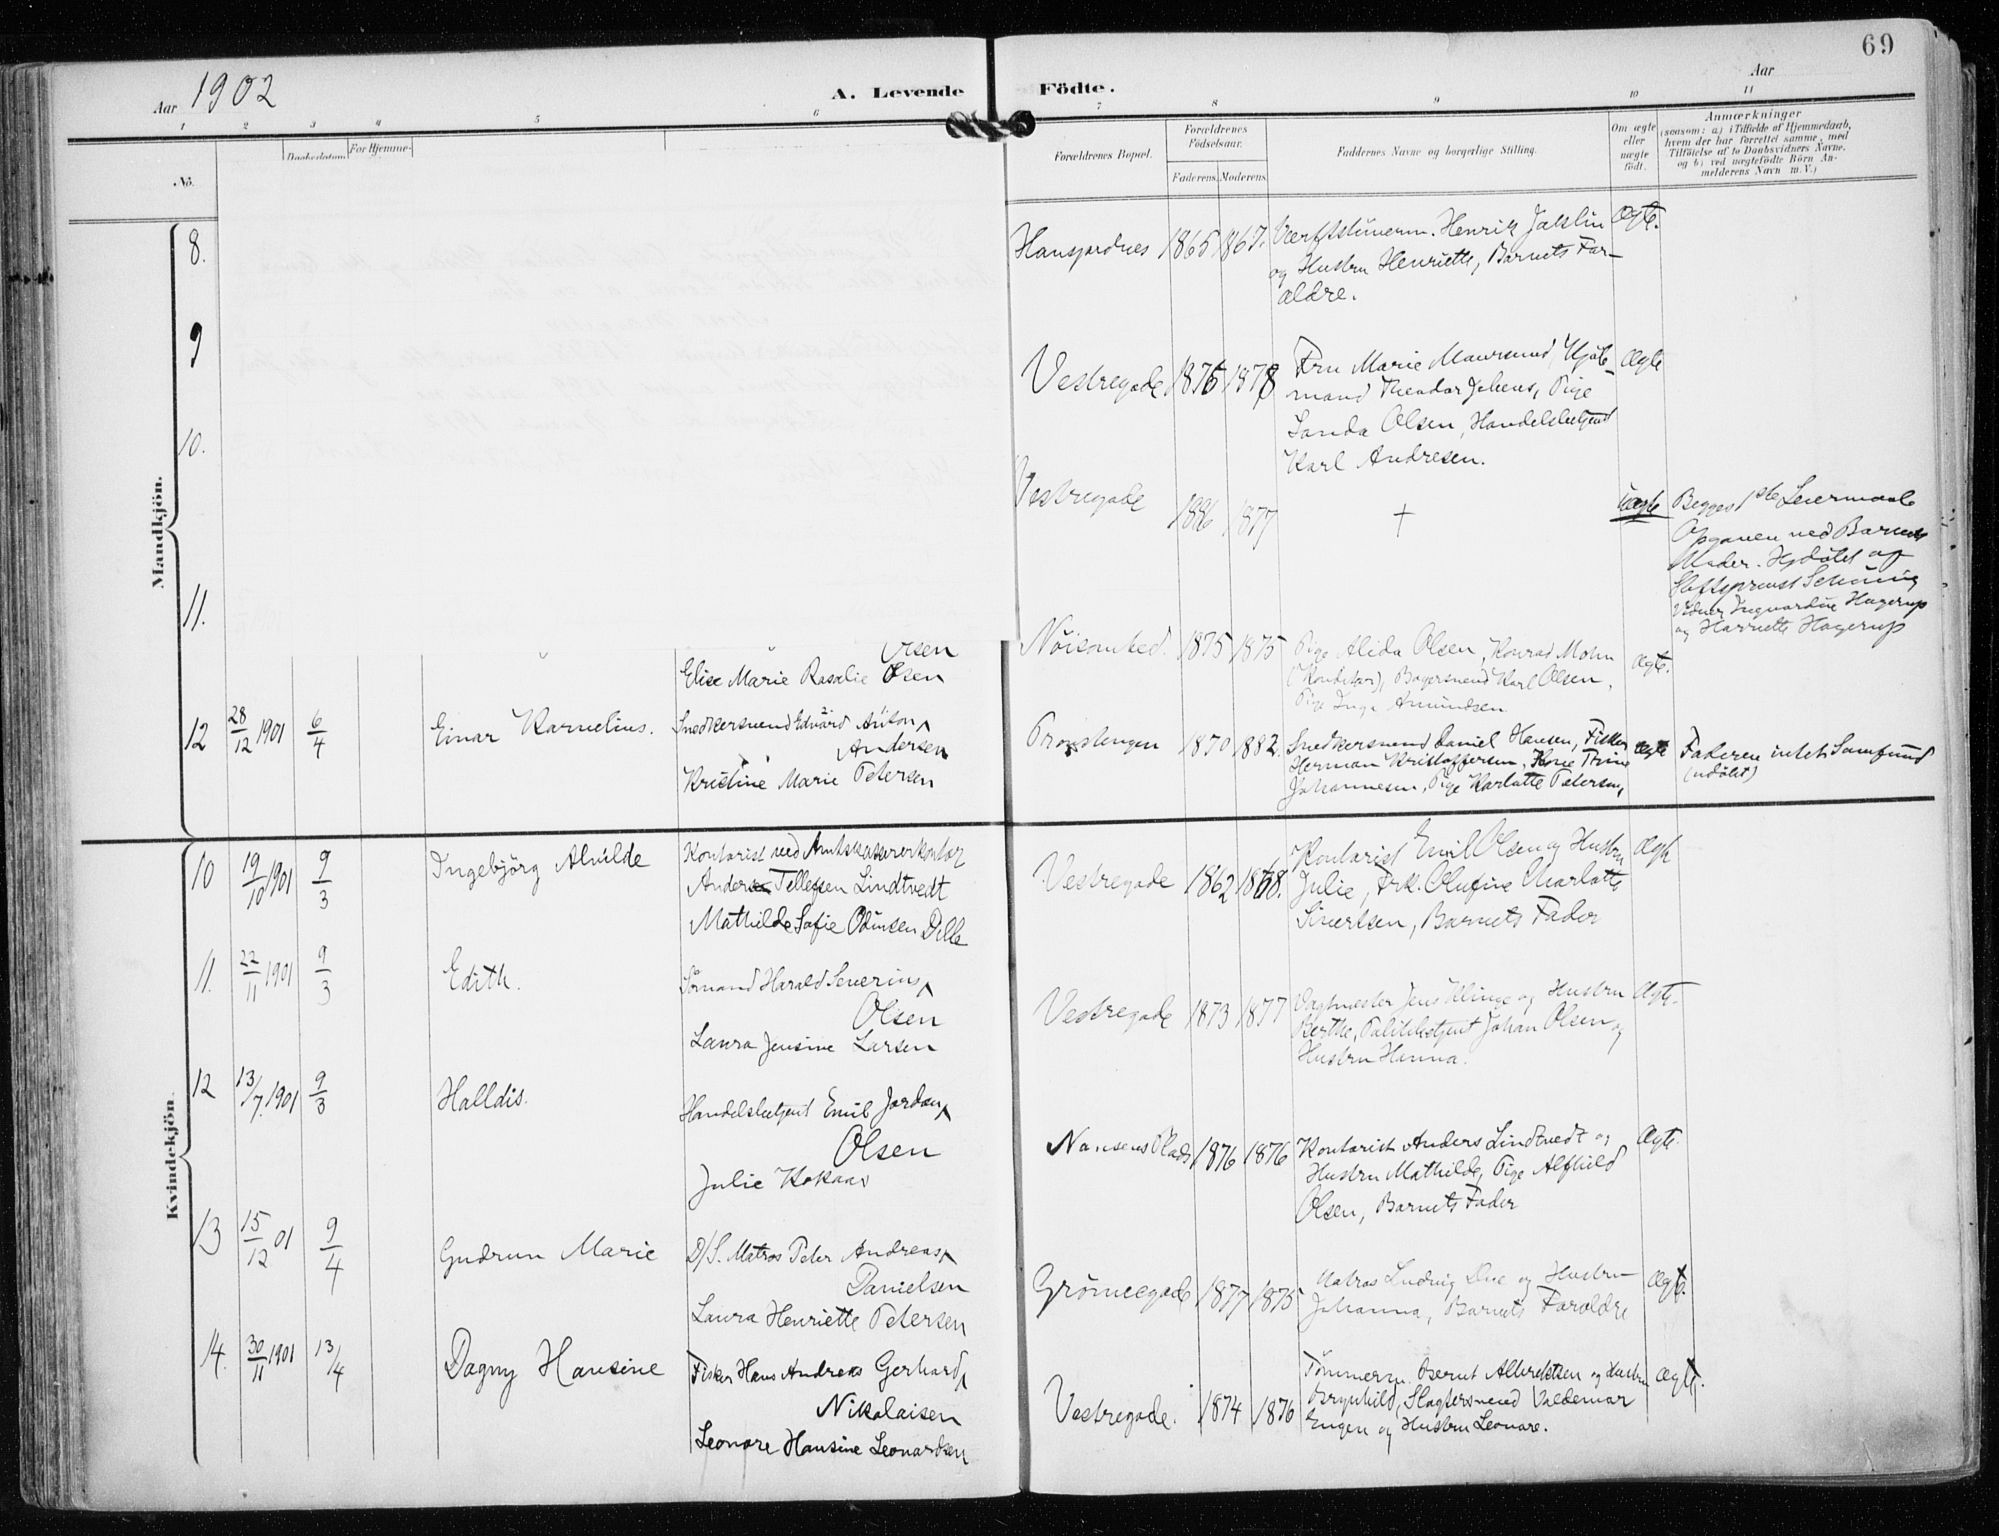 69
Aar 1902
A. Levende
Födte.
Aar
1 2 3 4 5 6
7 8 9 10 11
No.
Daabsdatum.
For Hjemme-
Forældrenes Bopæl.
Forældrenes
Födselsaar.
Faderens. Moderens.
Faddernes Navne og borgerlige Stilling.
Om ægte
eller
uægte
födt.
Anmærkninger
(saasom: a) i Tilfælde af Hjemmedaab,
hvem der har forrettet samme, med
Tilföielse af to Daabsvidners Navne,
og b) ved uægtefödte Börn An-
melderens Navn m. V.)
Mandkjön.
8.
Hansjordnes 1865 1867. Værftstimerm. Henrik Jakslin Ægte.
og Hustru Henriette, Barnets For-
ældre.
9
Vestregade 1876 1878 Fru Marie Maursund, Kjöb- Ægte
mand Theodor Johens, Pige
Janda Olsen, Handelsbetjent
Karl Andresen.
10.
Vestregade 1886 1877 + uægte Begges 1ste Leiermaal
Opgaven ved Barnets
Moder. Hjdöbt af
Stiftsprovst Schüning
Vidner Ingvardine Hagerup
og Harriette Hagerup
11.
Olsen
Elise Marie Rosalie Olsen
Nöisomhed. 1875 1875 Pige Alida Olsen, Konrad Mohn Ægte.
(Konditor), Bagersvend Karl Olsen,
Pige Inga Amundsen
12 28/12 1901 6/4 Einar Kornelius. Snedkersvend Edvard Anton
Andersen
Kristine Marie Petersen
Provstengen 1870 1882. Snedkersvend Daniel Hansen, Fisker Ægte Faderen intet Samfund
Herman Kristoffersen, Kone Trine (udöbt)
Johannesen, Pige Karlotte Petersen,
Kvindekjön.
10 19/10 1901 9/3 Ingebjörg Alvilde Kontorist ved Amtskasserer kontor
Anders Tellefsen Lindtvedt
Mathilde Sofie Odinsen Dille
Vestregade 1862 1868. Kontorist Emil Olsen og Hustru Ægte
Julie, Frk. Olufine Charlotte
Sivertsen, Barnets Fader
11. 22/11 1901 9/3 Edith. Sömand Harald Severin
Olsen
Laura Jensine Larsen
Vestregade 1873 1877 Vagtmester Jens Klinge og Hustru Ægte.
Berthe, Politibetjent Johan Olsen og
Hustru Hanna.
12 13/7. 1901 9/3 Halldis. Handelsbetjent Emil Jordan
Olsen
Julie Kokaas
Nansens Plads 1876 1876 Kontorist Anders Lindtvedt og Ægte.
Hustru Mathilde, Pige Alfhild
Olsen, Barnets Fader
13 15/12 01 9/4 Gudrun Marie D/S. Matros Peter Andreas
Danielsen
Laura Henriette Petersen
Grönnegade 1877 1875 Matros Ludvig Due og Hustru Ægte.
Johanna, Barnets Forældre
14. 30/11 1901 13/4 Dagny Hansine Fisker Hans Andreas Gerhard
Nikolaisen
Leonore Hansine Leonardsen
Vestregade. 1874 1876 Tömmerm. Bernt Albrektsen og Hustru Ægte.
Brynhild, Slagtersvend Valdemar
Engen og Hustru Leonore.